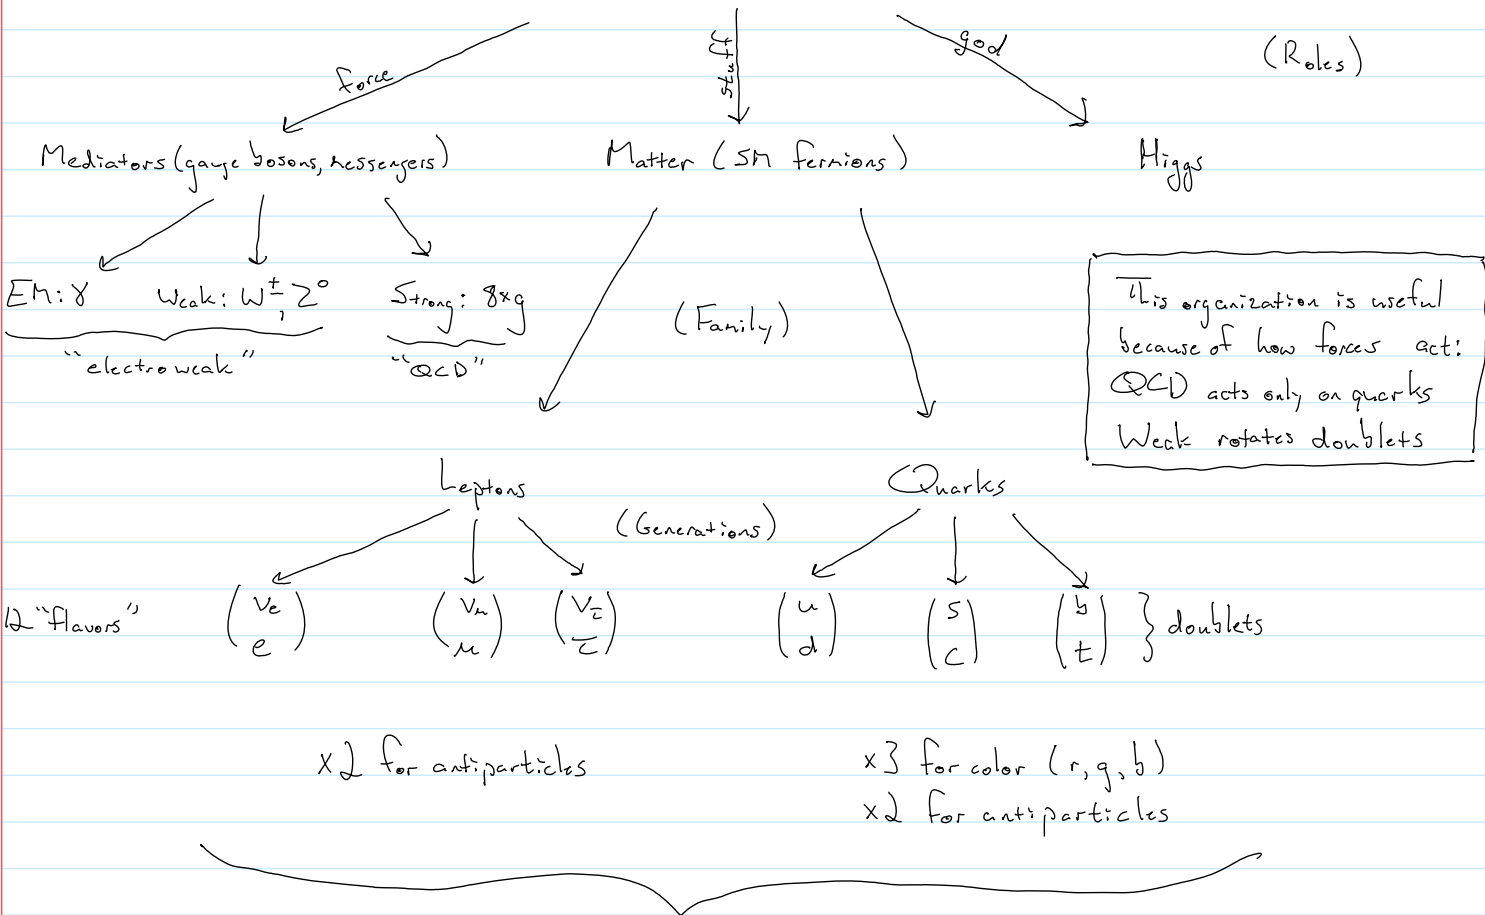 force
stuff
god
(Roles)
Mediators (gauge bosons, messengers)
Matter (SM fermions)
Higgs
EM: γ
Weak: W±, Z⁰
Strong: 8×g
"electroweak"
"QCD"
(Family)
This organization is useful
because of how forces act:
QCD acts only on quarks
Weak rotates doublets
Leptons
Quarks
(Generations)
12 "flavors"
νe
e
νμ
μ
ντ
τ
u
d
s
c
b
t
doublets
×2 for antiparticles
×3 for color (r, g, b)
×2 for antiparticles